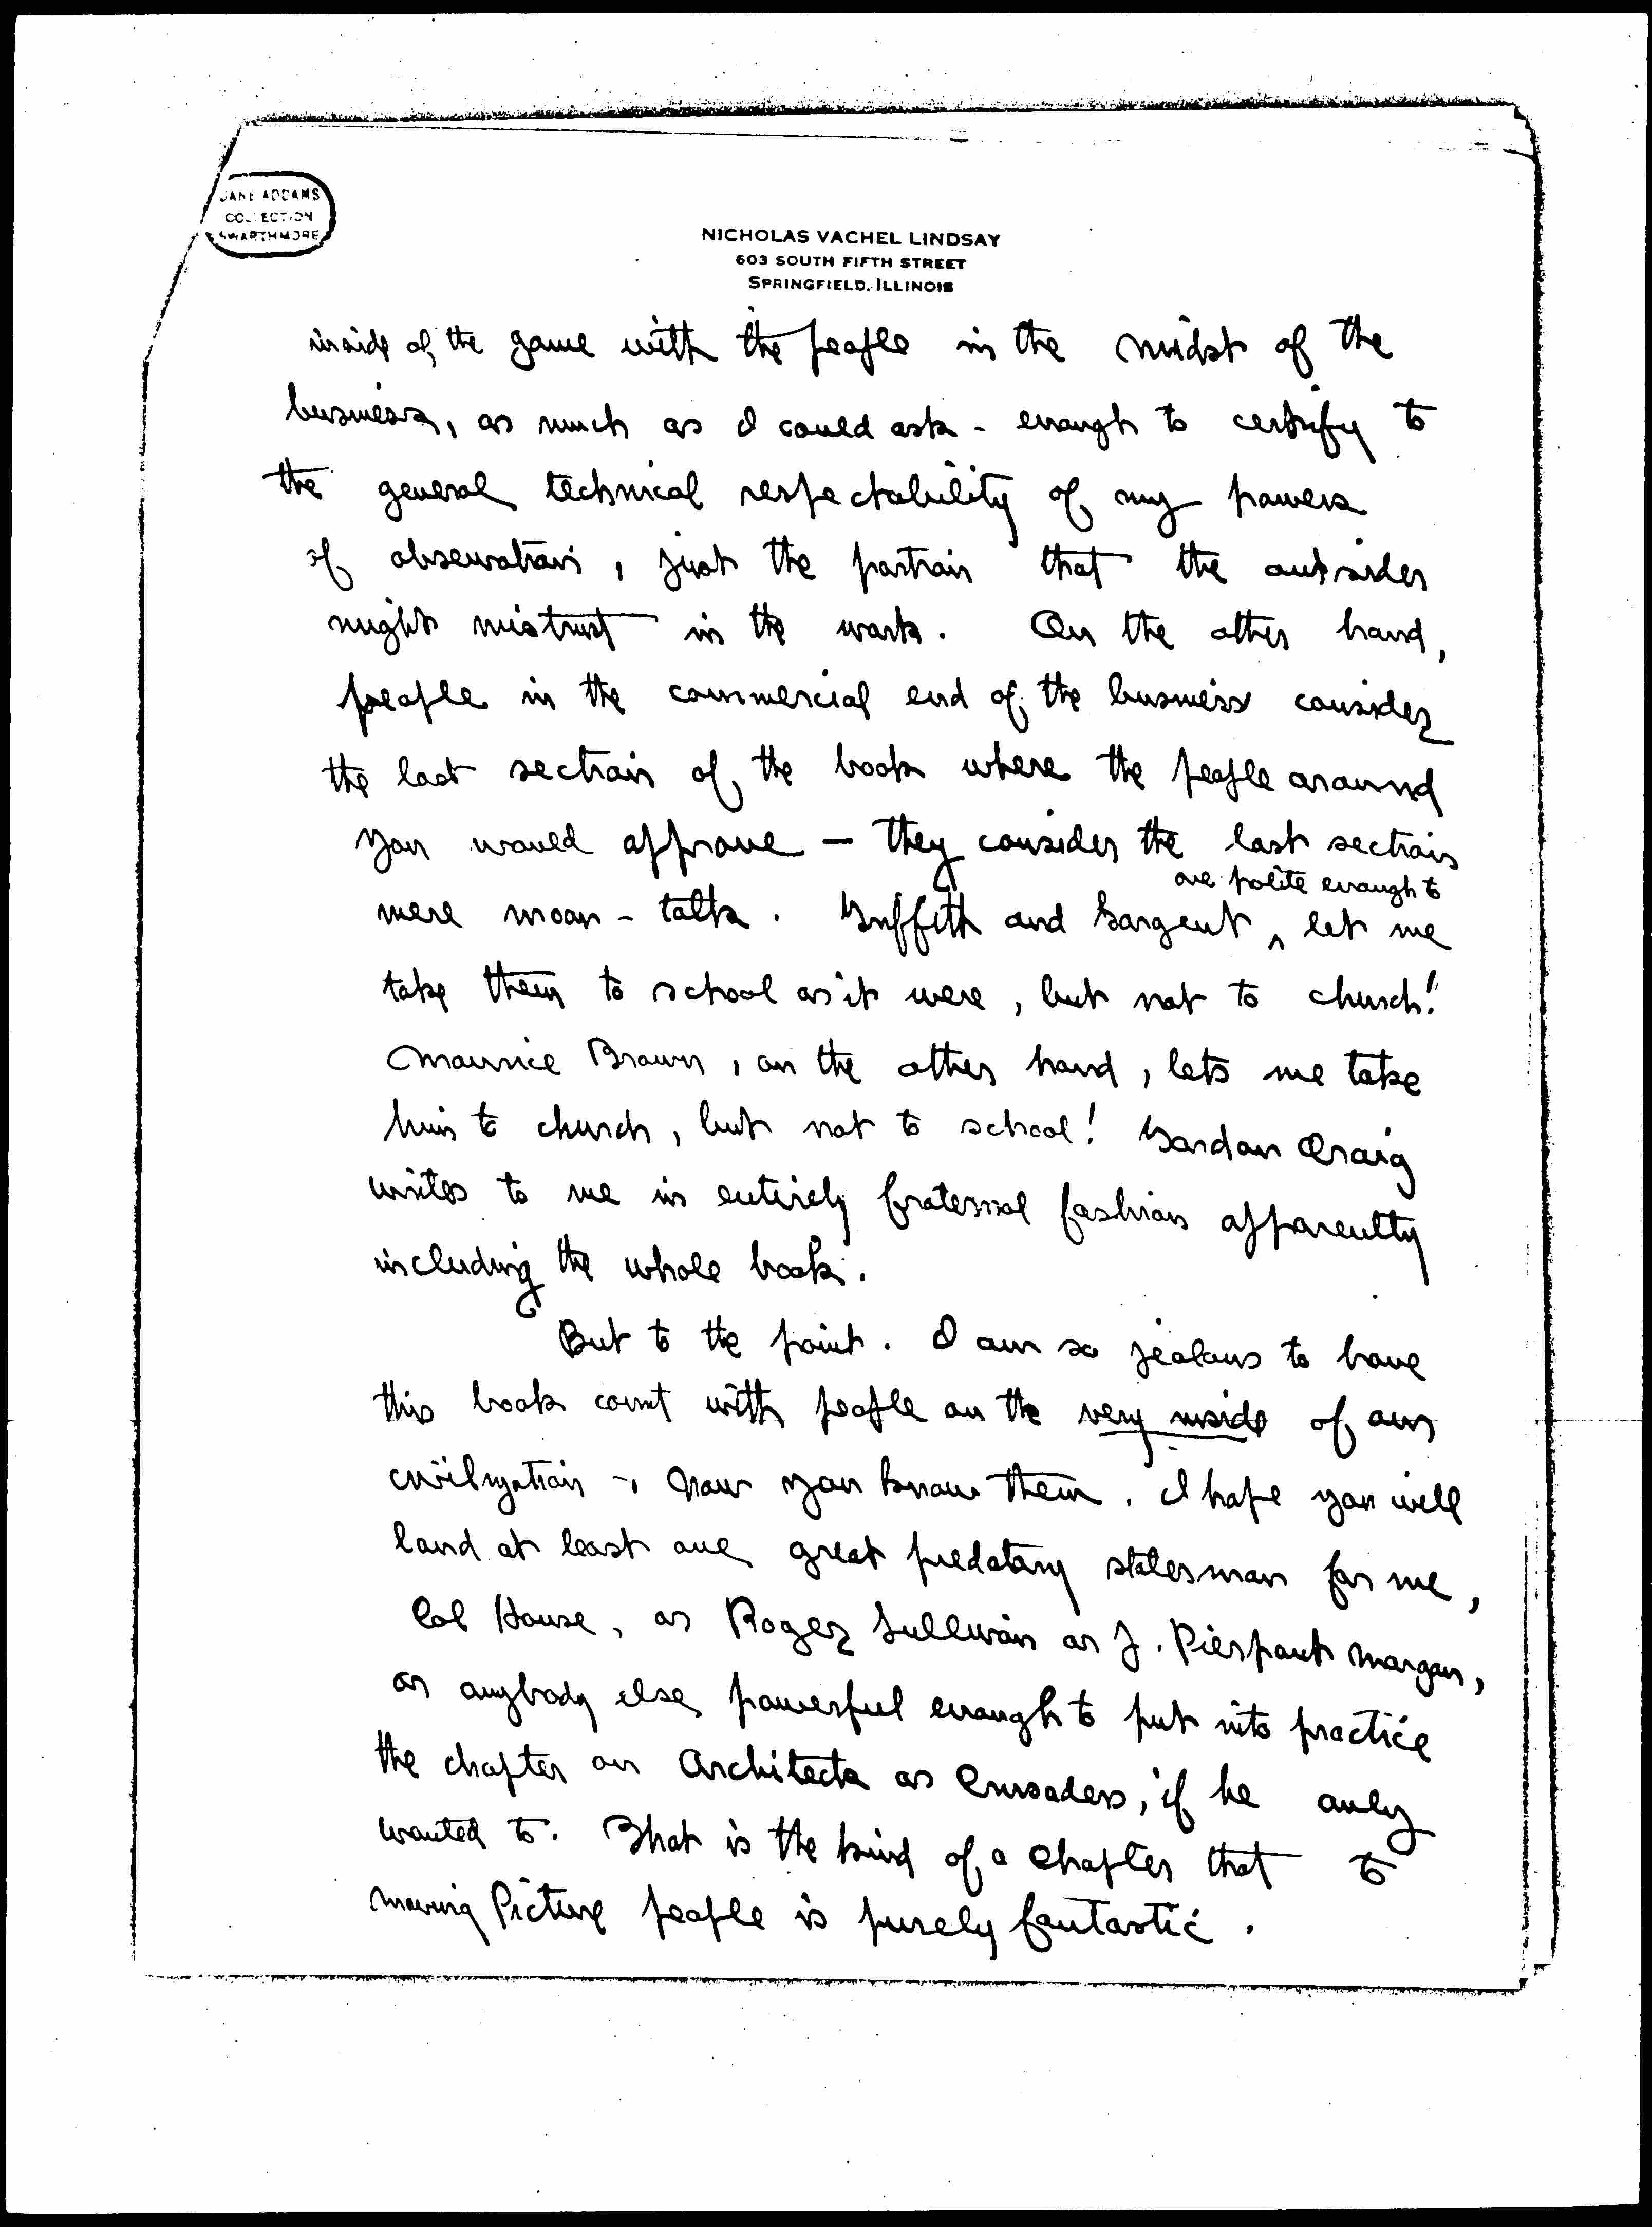 JANE ADDAMS
COLLECTION
SWARTHMORE
NICHOLAS VACHEL LINDSAY
603 SOUTH FIFTH STREET
SPRINGFIELD, ILLINOIS
inside of the game with the people in the midst of the
business, as much as I could ask - enough to certify to
the general technical respectability of my powers
of observation, just the portion that the outsider
might mistrust in the work. On the other hand,
people in the commercial end of the business consider
the last section of the book where the people around
you would approve — they consider the last section
are polite enough to
mere moon-talk. Griffith and Sargent ^ let me
take them to school as it were, but not to church!
Maurice Brown, on the other hand, lets me take
him to church, but not to school! Gordon Craig
writes to me in entirely fraternal fashion apparently
including the whole book.
But to the point. I am so jealous to have
this book count with people on the very inside of our
civilization -, now you know them. I hope you will
land at least one great predatory statesman for me,
Col House, or Roger Sullivan or J. Pierpont Morgan,
or anybody else powerful enough to put into practice
the chapter on Architects as Crusaders, if he only
wanted to. That is the kind of a chapter that to
moving Picture people is purely fantastic.